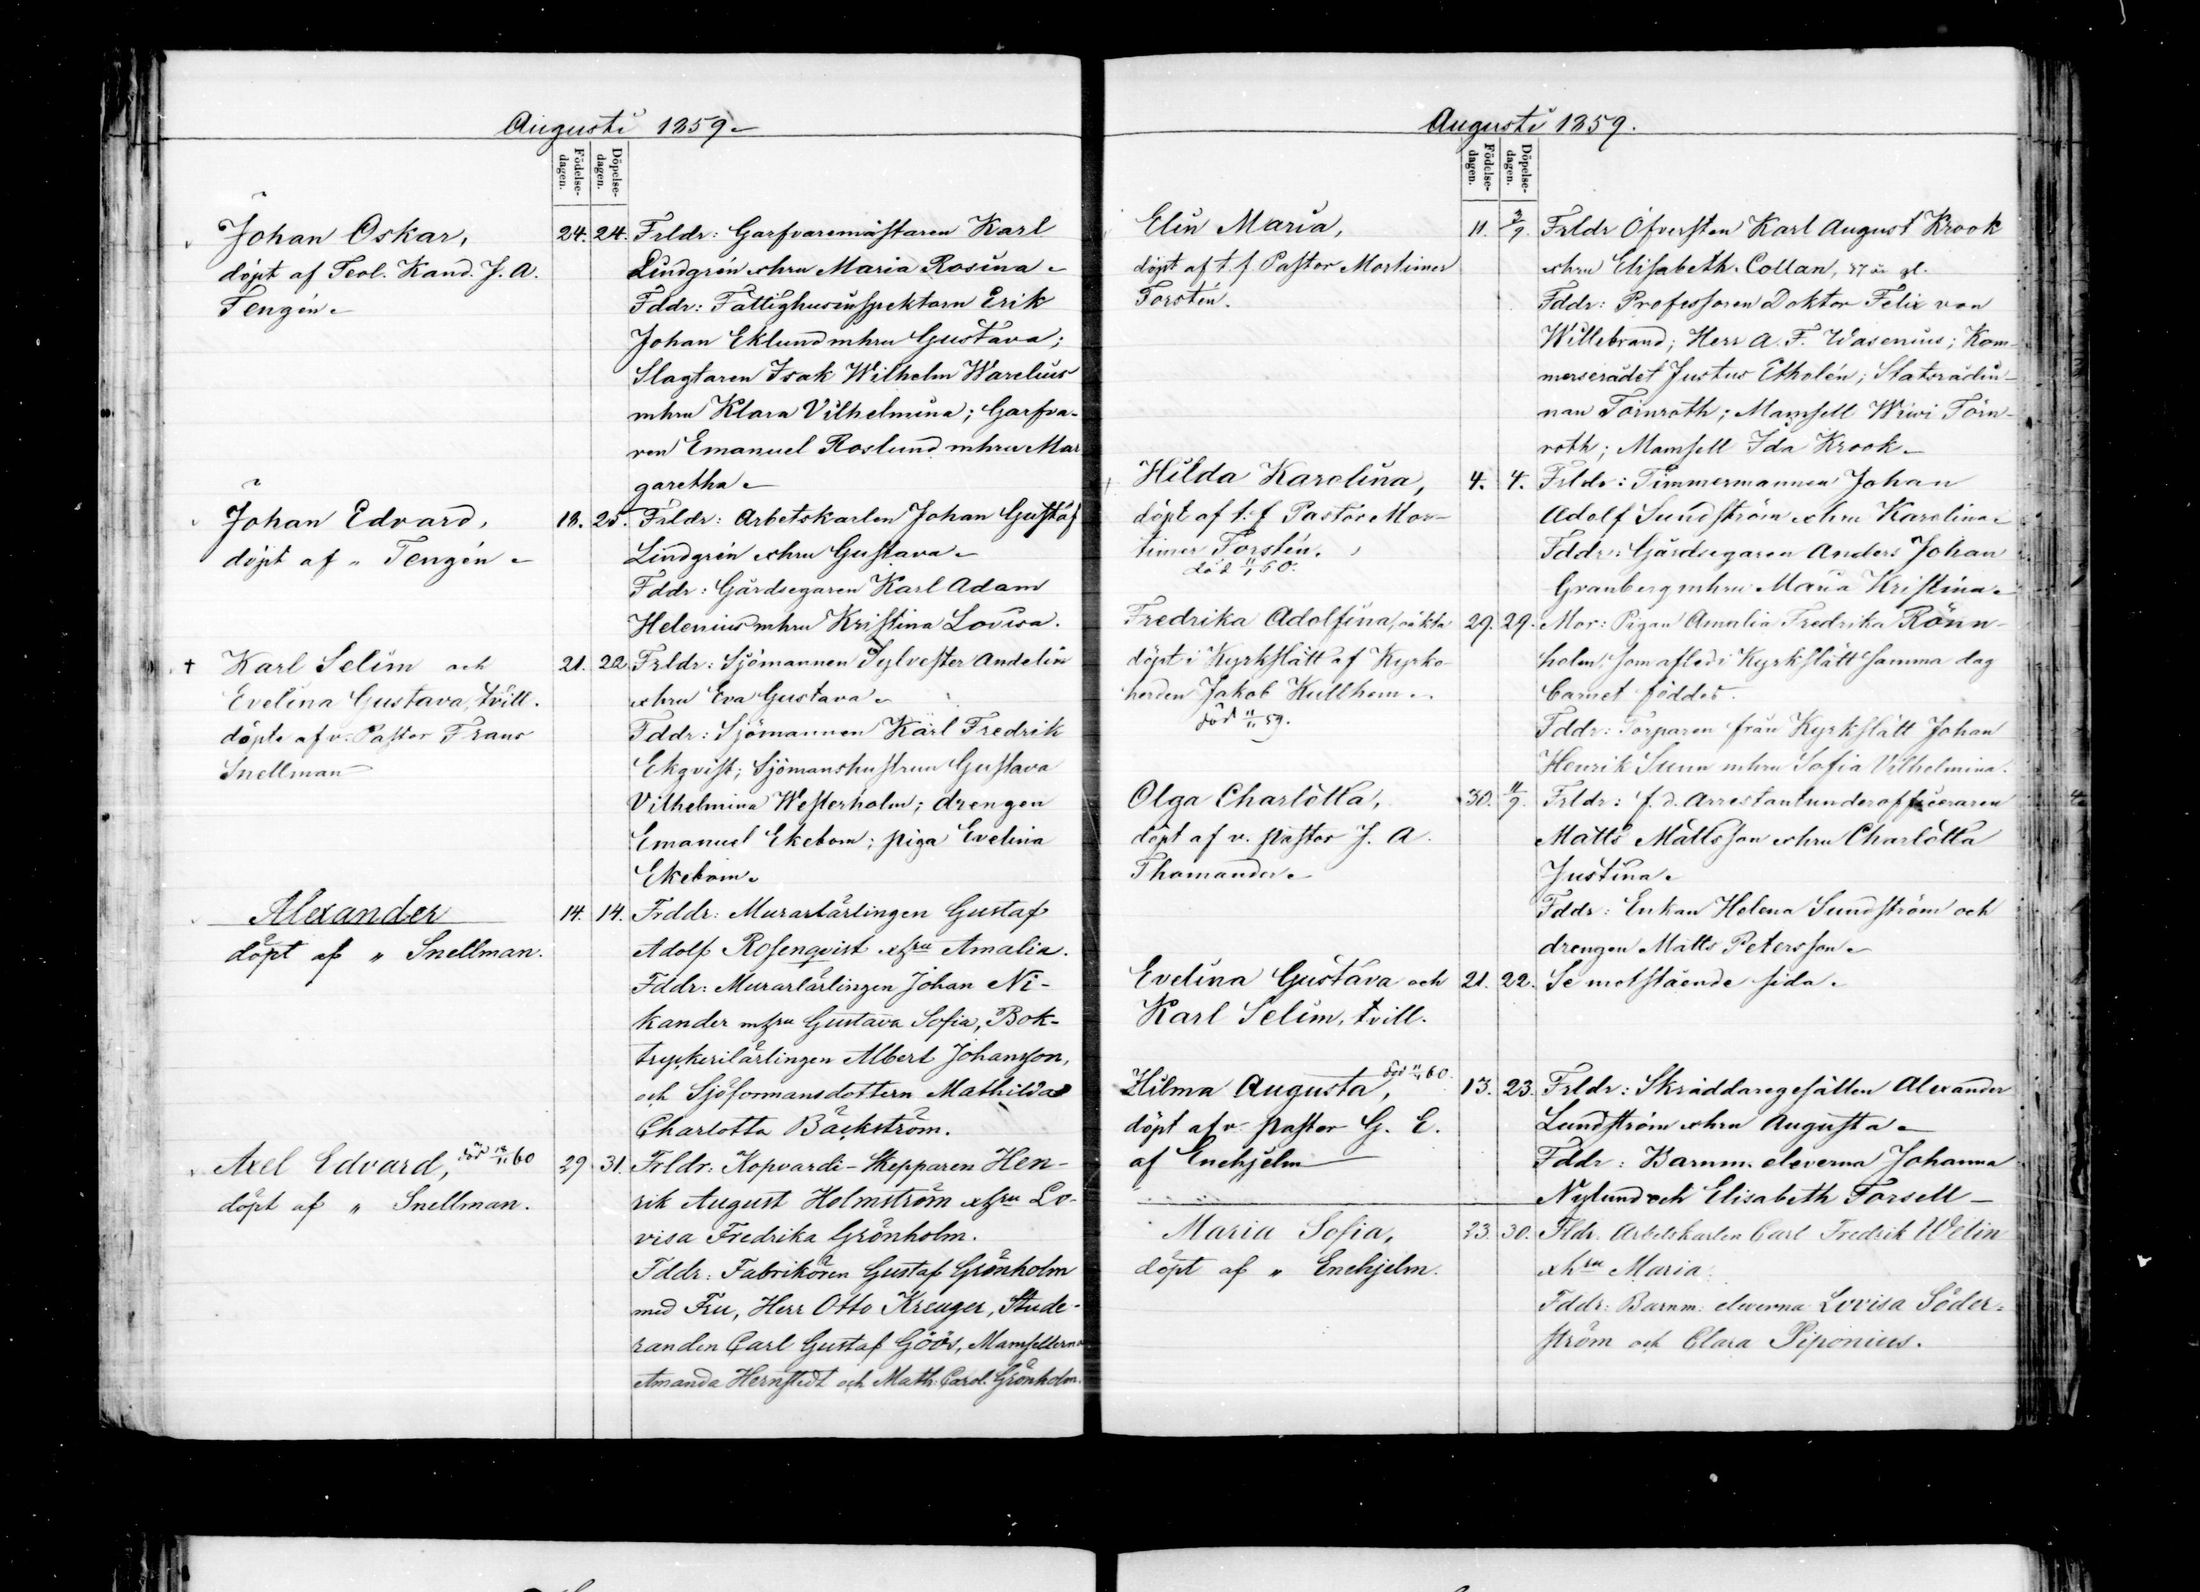 Augusti 1859.
Födelse-dagen.
Döpelse-dagen.
Johan Oskar,
döpt af Teol. Kand. J. A.
Tengén.
24. 24.
Frldr: Garfvaremästaren Karl
Lindgrén o hru Maria Rosina.
Fddr: Fattighusinspektorn Erik
Johan Eklund m hru Gustava;
Slagtaren Isak Wilhelm Warelius
m hru Klara Vilhelmina; Garfva-
ren Emanuel Roslund m hru Mar
garetha.
Johan Edvard,
döpt af " Tengén.
18. 25.
Frldr: Arbetskarlen Johan Gustaf
Lindgrén o hru Gustava.
Fddr: Gårdsegaren Karl Adam
Helenius m hru Kristina Lovisa.
† Karl Selim och
Evelina Gustava, tvill.
döpte af v. Pastor Frans
Snellman
21. 22.
Frldr: Sjömannen Sylvester Andelin
o hru Eva Gustava.
Fddr: Sjömannen Karl Fredrik
Ekqvist; Sjömanshustrun Gustava
Vilhelmina Westerholm; drengen
Emanuel Ekebom; piga Evelina
Ekebom.
Alexander
döpt af " Snellman.
14. 14.
Frddr: Murarlärlingen Gustaf
Adolf Rosenqvist o hru Amalia.
Fddr: Murarlärlingen Johan Ni-
kander m hru Gustava Sofia, Bok-
tryckerilärlingen Albert Johansson,
och Sjöformansdottern Mathilda
Charlotta Bäckström.
Axel Edvard, död 60
döpt af " Snellman.
29. 31.
Frldr: Kopvardi-Skepparen Hen-
rik August Holmström o hru Lo-
visa Fredrika Grönholm.
Fddr: Fabrikören Gustaf Grönholm
med Fru, Herr Otto Kreuger, Stude-
randen Carl Gustaf Göös, Mamsellerna
Amanda Hernstedt och Math. Carol. Grönholm.
Augusti 1859.
Födelse-dagen.
Döpelse-dagen.
Elin Maria,
döpt af t. f. Pastor Mortimer
Forstén.
11. 3/9.
Frldr Öfversten Karl August Krook
o hru Elisabeth Collan, 27 år gl.
Fddr: Professoren Doktor Felix von
Willebrand; Herr A. F. Wasenius; Kom-
merserådet Justus Etholén; Statsrådin-
nan Törnroth; Mamsell Wivi Törn-
roth; Mamsell Ida Krook.
Hilda Karolina,
döpt af t. f. Pastor Mor-
timer Forstén.
död 60.
4. 4.
Frldr: Timmermannen Johan
Adolf Sundström o hru Karolina.
Fddr: Gårdsegaren Anders Johan
Granberg m hru Maria Kristina.
Fredrika Adolfina, oäkta
döpt i Kyrkslätt af Kyrko-
herden Jakob Kullhem.
död 59.
29. 29.
Mor: Pigan Amalia Fredrika Rönn-
holm, som afled i Kyrkslätt samma dag
barnet föddes.
Fddr: Torparen från Kyrkslätt Johan
Henrik Sunn m hru Sofia Vilhelmina.
Olga Charlotta,
döpt af v. pastor J. A.
Thomander.
30. 11/9.
Frldr: f. d. Arrestantunderofficeraren
Matts Mattsson o hru Charlotta
Justina.
Fddr: Enkan Helena Sundström och
drengen Matts Petersson.
Evelina Gustava och
Karl Selim, tvill.
21. 22.
Se motstående sida.
Hilma Augusta, död 60.
döpt af v. pastor G. E.
af Enehjelm
13. 23.
Frldr: Skräddaregesällen Alexander
Lundström o hru Augusta.
Fddr: Barnm. eleverna Johanna
Nylund och Elisabeth Forsell
Maria Sofia,
döpt af " Enehjelm.
23. 30.
Fldr. Arbetskarlen Carl Fredrik Welin
o hru Maria.
Fddr: Barnm: eleverna Lovisa Söder-
ström och Clara Piponius.